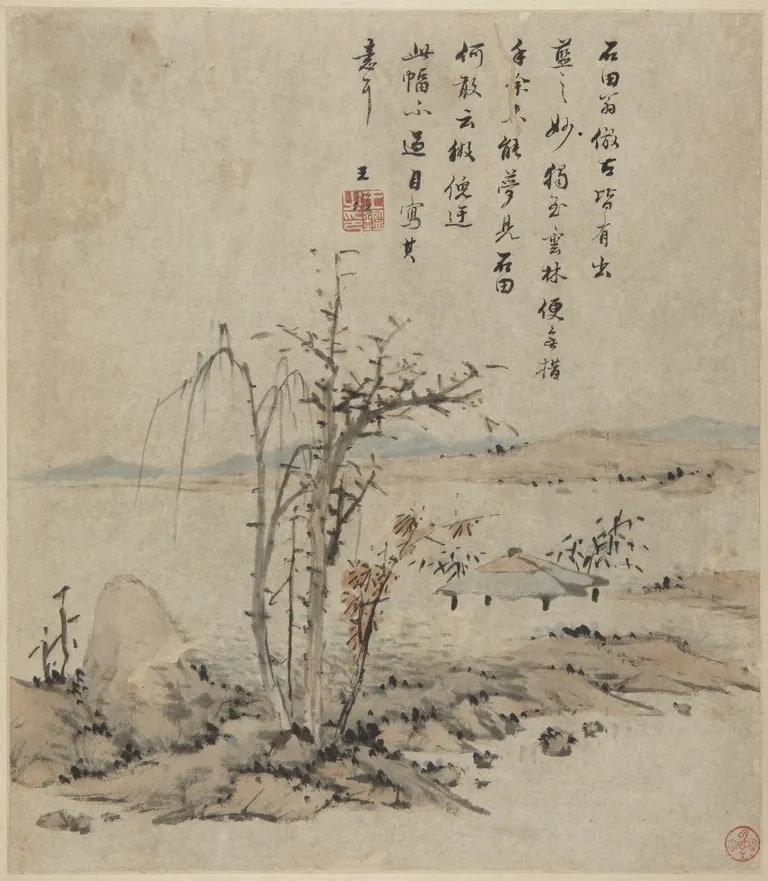 石田翁倣古皆有出
藍之妙獨至雲林便無措
手余能夢見石田
何敢云倣倪迂
此幅不過自寫其
意耳
王